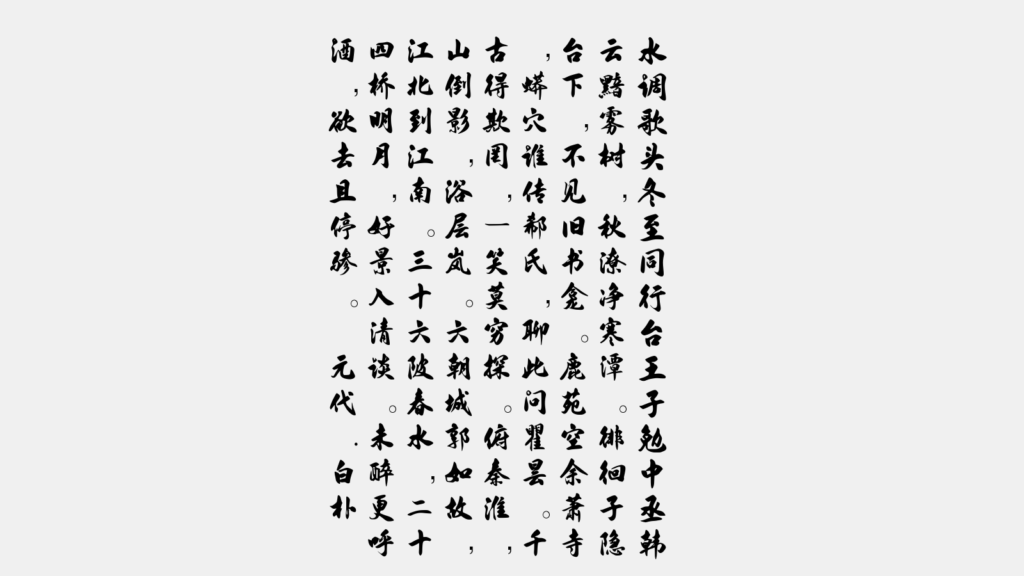 水调歌头冬至同行台王子勉中丞韩
云黯雾树,秋潦净寒潭。徘徊子隐
台下,不见旧书龛。鹿苑空余萧寺
,蟒穴谁传郗氏,聊此问瞿昙。千
古得欺罔,一笑莫穷探。俯秦淮,
山倒影,浴层岚。六朝城郭如故,
江北到江南。三十六陂春水,二十
四桥明月,好景入清谈。未醉更呼
酒,欲去且停骖。 元代.白朴